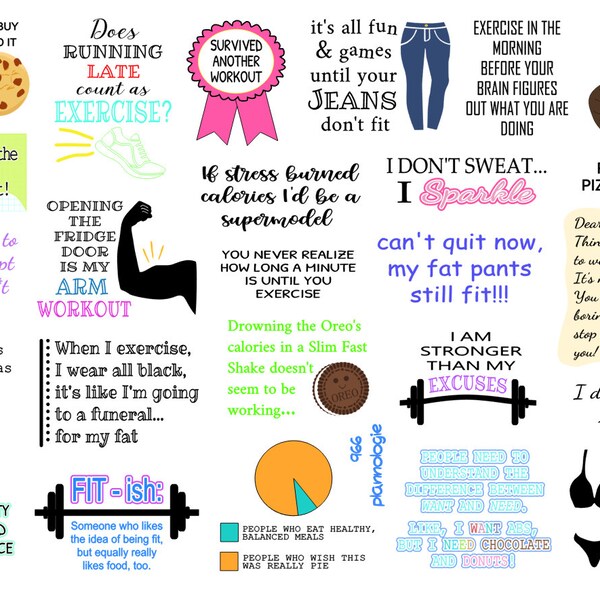 BUY
IT
Does
RUNNING
LATE
count as
EXERCISE?
SURVIVED
ANOTHER
WORKOUT
it's all fun
& games
until your
JEANS
don't fit
EXERCISE IN THE
MORNING
BEFORE YOUR
BRAIN FIGURES
OUT WHAT YOU ARE
DOING
the
!
to
OPENING
THE
FRIDGE
DOOR
IS MY
ARM
WORKOUT
If stress burned
calories I'd be a
supermodel
YOU NEVER REALIZE
HOW LONG A MINUTE
IS UNTIL YOU
EXERCISE
I DON'T SWEAT...
I Sparkle
can't quit now,
my fat pants
still fit!!!
PIZ
Dear
Thin
to w
It's n
You
borin
stop
you!
as
When I exercise,
I wear all black,
it's like I'm going
to a funeral...
for my fat
Drowning the Oreo's
calories in a Slim Fast
Shake doesn't
seem to be
working...
OREO
I AM
STRONGER
THAN MY
EXCUSES
I d
TY
D
CE
FIT - ish:
Someone who likes
the idea of being fit,
but equally really
likes food, too.
PEOPLE WHO EAT HEALTHY,
BALANCED MEALS
PEOPLE WHO WISH THIS
WAS REALLY PIE
966
plannologie
PEOPLE NEED TO
UNDERSTAND THE
DIFFERENCE BETWEEN
WANT AND NEED.
LIKE, I WANT ABS,
BUT I NEED CHOCOLATE
AND DONUTS!